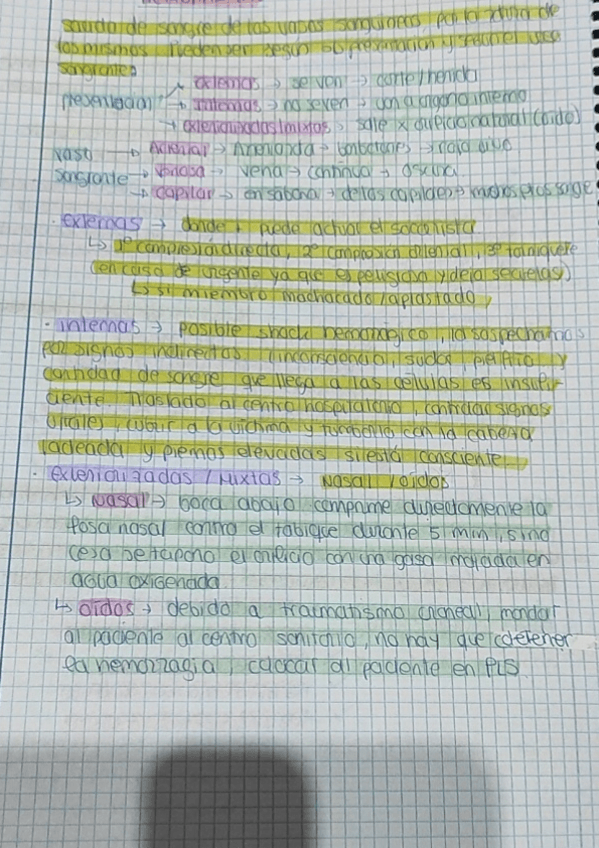 salida de sangre de los vasos sanguíneos, por la rotura de
los mismos. Pueden ser según su presentación y según el vaso
sangrante:
externas → se ven → corte/herida
presentación → internas → no se ven → un órgano interno
→ exteriorizadas/mixtas → sale x orificio natural (oído)
vaso → Arterial → Arterias → → rojo vivo
sangrante → venosa → vena → continua → oscura
→ capilar → en sabana → de los capilares →
· externas → donde + puede actuar el socorrista
↳ 1º compresión directa, 2º compresión arterial, 3º torniquete
(en caso de urgente ya que es peligroso y deja secuelas)
↳ si miembro machacado/aplastado
· internas → posible shock hemorrágico, lo sospechamos
por signos indirectos (inconsciencia, sudor, piel fría y
cantidad de sangre que llega a las células es insufi-
ciente. Traslado al centro hospitalario, controlar signos
vitales, cubrir a la víctima y tumbarla con la cabeza
ladeada y piernas elevadas si está consciente.
· exteriorizadas / Mixtas → Nasal / oídos
↳ Nasal → boca abajo comprime directamente la
fosa nasal contra el tabique durante 5 min, sino
cesa se tapona el orificio con una gasa mojada en
agua oxigenada.
↳ oídos → debido a traumatismo craneal, mandar
al paciente al centro sanitario, no hay que detener
la hemorragia, colocar al paciente en PLS